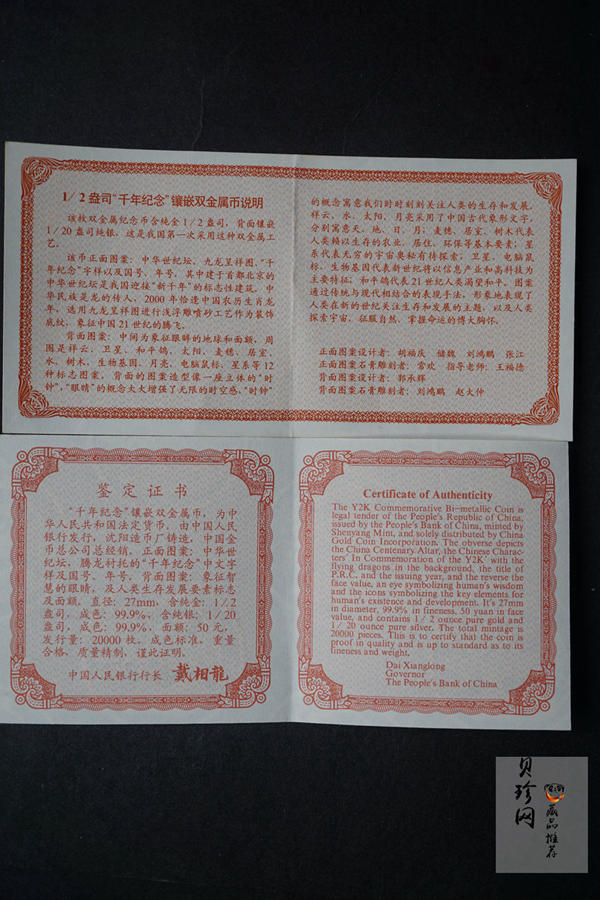 1/2盎司“千年纪念”镶嵌双金属币说明
该枚双金属纪念币含纯金1/2盎司，背面镶嵌
1/20盎司纯银，这是我国第一次采用这种双金属工
艺。
该币正面图案：中华世纪坛、九龙呈祥图、“千
年纪念”字样以及国号、年号，其中建于首都北京的
中华世纪坛是我国迎接“新千年”的标志性建筑。中
华民族是龙的传人，2000年恰逢中国农历生肖龙
年，选用九龙呈祥图进行浅浮雕喷砂工艺作为装饰
底纹，象征中国21世纪的腾飞。
背面图案：中间为象征眼眸的地球和面额，周
围是祥云、卫星、和平鸽、太阳、麦穗、居室、
水、树木、生物基因、月亮、电脑鼠标、星系等12
种标志图案，背面的图案造型像一座立体的“时
钟”，“眼睛”的概念大大增强了无限的时空感，“时钟”
的概念寓意我们时时刻刻关注人类的生存和发展。
祥云、水、太阳、月亮采用了中国古代象形文字，
分别寓意天、地、日、月；麦穗、居室、树木代表
人类赖以生存的农业、居住、环保等基本要素；星
系代表无穷的宇宙奥秘有待探索；卫星、电脑鼠
标、生物基因代表新世纪将以信息产业和高科技为
主要特征；和平鸽代表21世纪人类渴望和平。图案
通过传统与现代相结合的表现手法，形象地表现了
人类在新的世纪关注生存和发展的主题，以及人类
探索宇宙、征服自然、掌握命运的博大胸怀。
正面图案设计者：胡福庆 储魏 刘鸿鹏 张江
正面图案石膏雕刻者：常欢 指导老师：王福德
背面图案设计者：郭承辉
背面图案石膏雕刻者：刘鸿鹏 赵大仲
鉴定证书
“千年纪念”镶嵌双金属币，为中
华人民共和国法定货币。由中国人民
银行发行，沈阳造币厂铸造，中国金
币总公司总经销。正面图案：中华世
纪坛、腾龙衬托的“千年纪念”中文字
样及国号、年号，背面图案：象征智
慧的眼睛，及人类生存发展要素标志
及面额。直径：27mm，含纯金：1/2
盎司，成色：99.9%，含纯银：1/20
盎司，成色：99.9%，面额：50元，
发行量：20000枚。成色标准，重量
合格，质量精制，谨此证明。
中国人民银行行长 戴相龍
Certificate of Authenticity
The Y2K Commemorative Bi-metallic Coin is
legal tender of the People's Republic of China,
issued by the People's Bank of China, minted by
Shenyang Mint, and solely distributed by China
Gold Coin Incorporation. The obverse depicts
the China Centenary Altar, the Chinese Charac-
ters' In Commemoration of the Y2K' with the
flying dragons in the background, the title of
P.R.C. and the issuing year, and the reverse the
face value, an eye symbolizing human's wisdom
and the icons symbolizing the key elements for
human's existence and development. It's 27mm
in diameter, 99.9% in fineness, 50 yuan in face
value, and contains 1/2 ounce pure gold and
1/20 ounce pure silver. The total mintage is
20000 pieces. This is to certify that the coin is
proof in quality and is up to standard as to its
fineness and weight.
Dai Xianglong
Governor
The People's Bank of China
贝珍网
藏品推荐